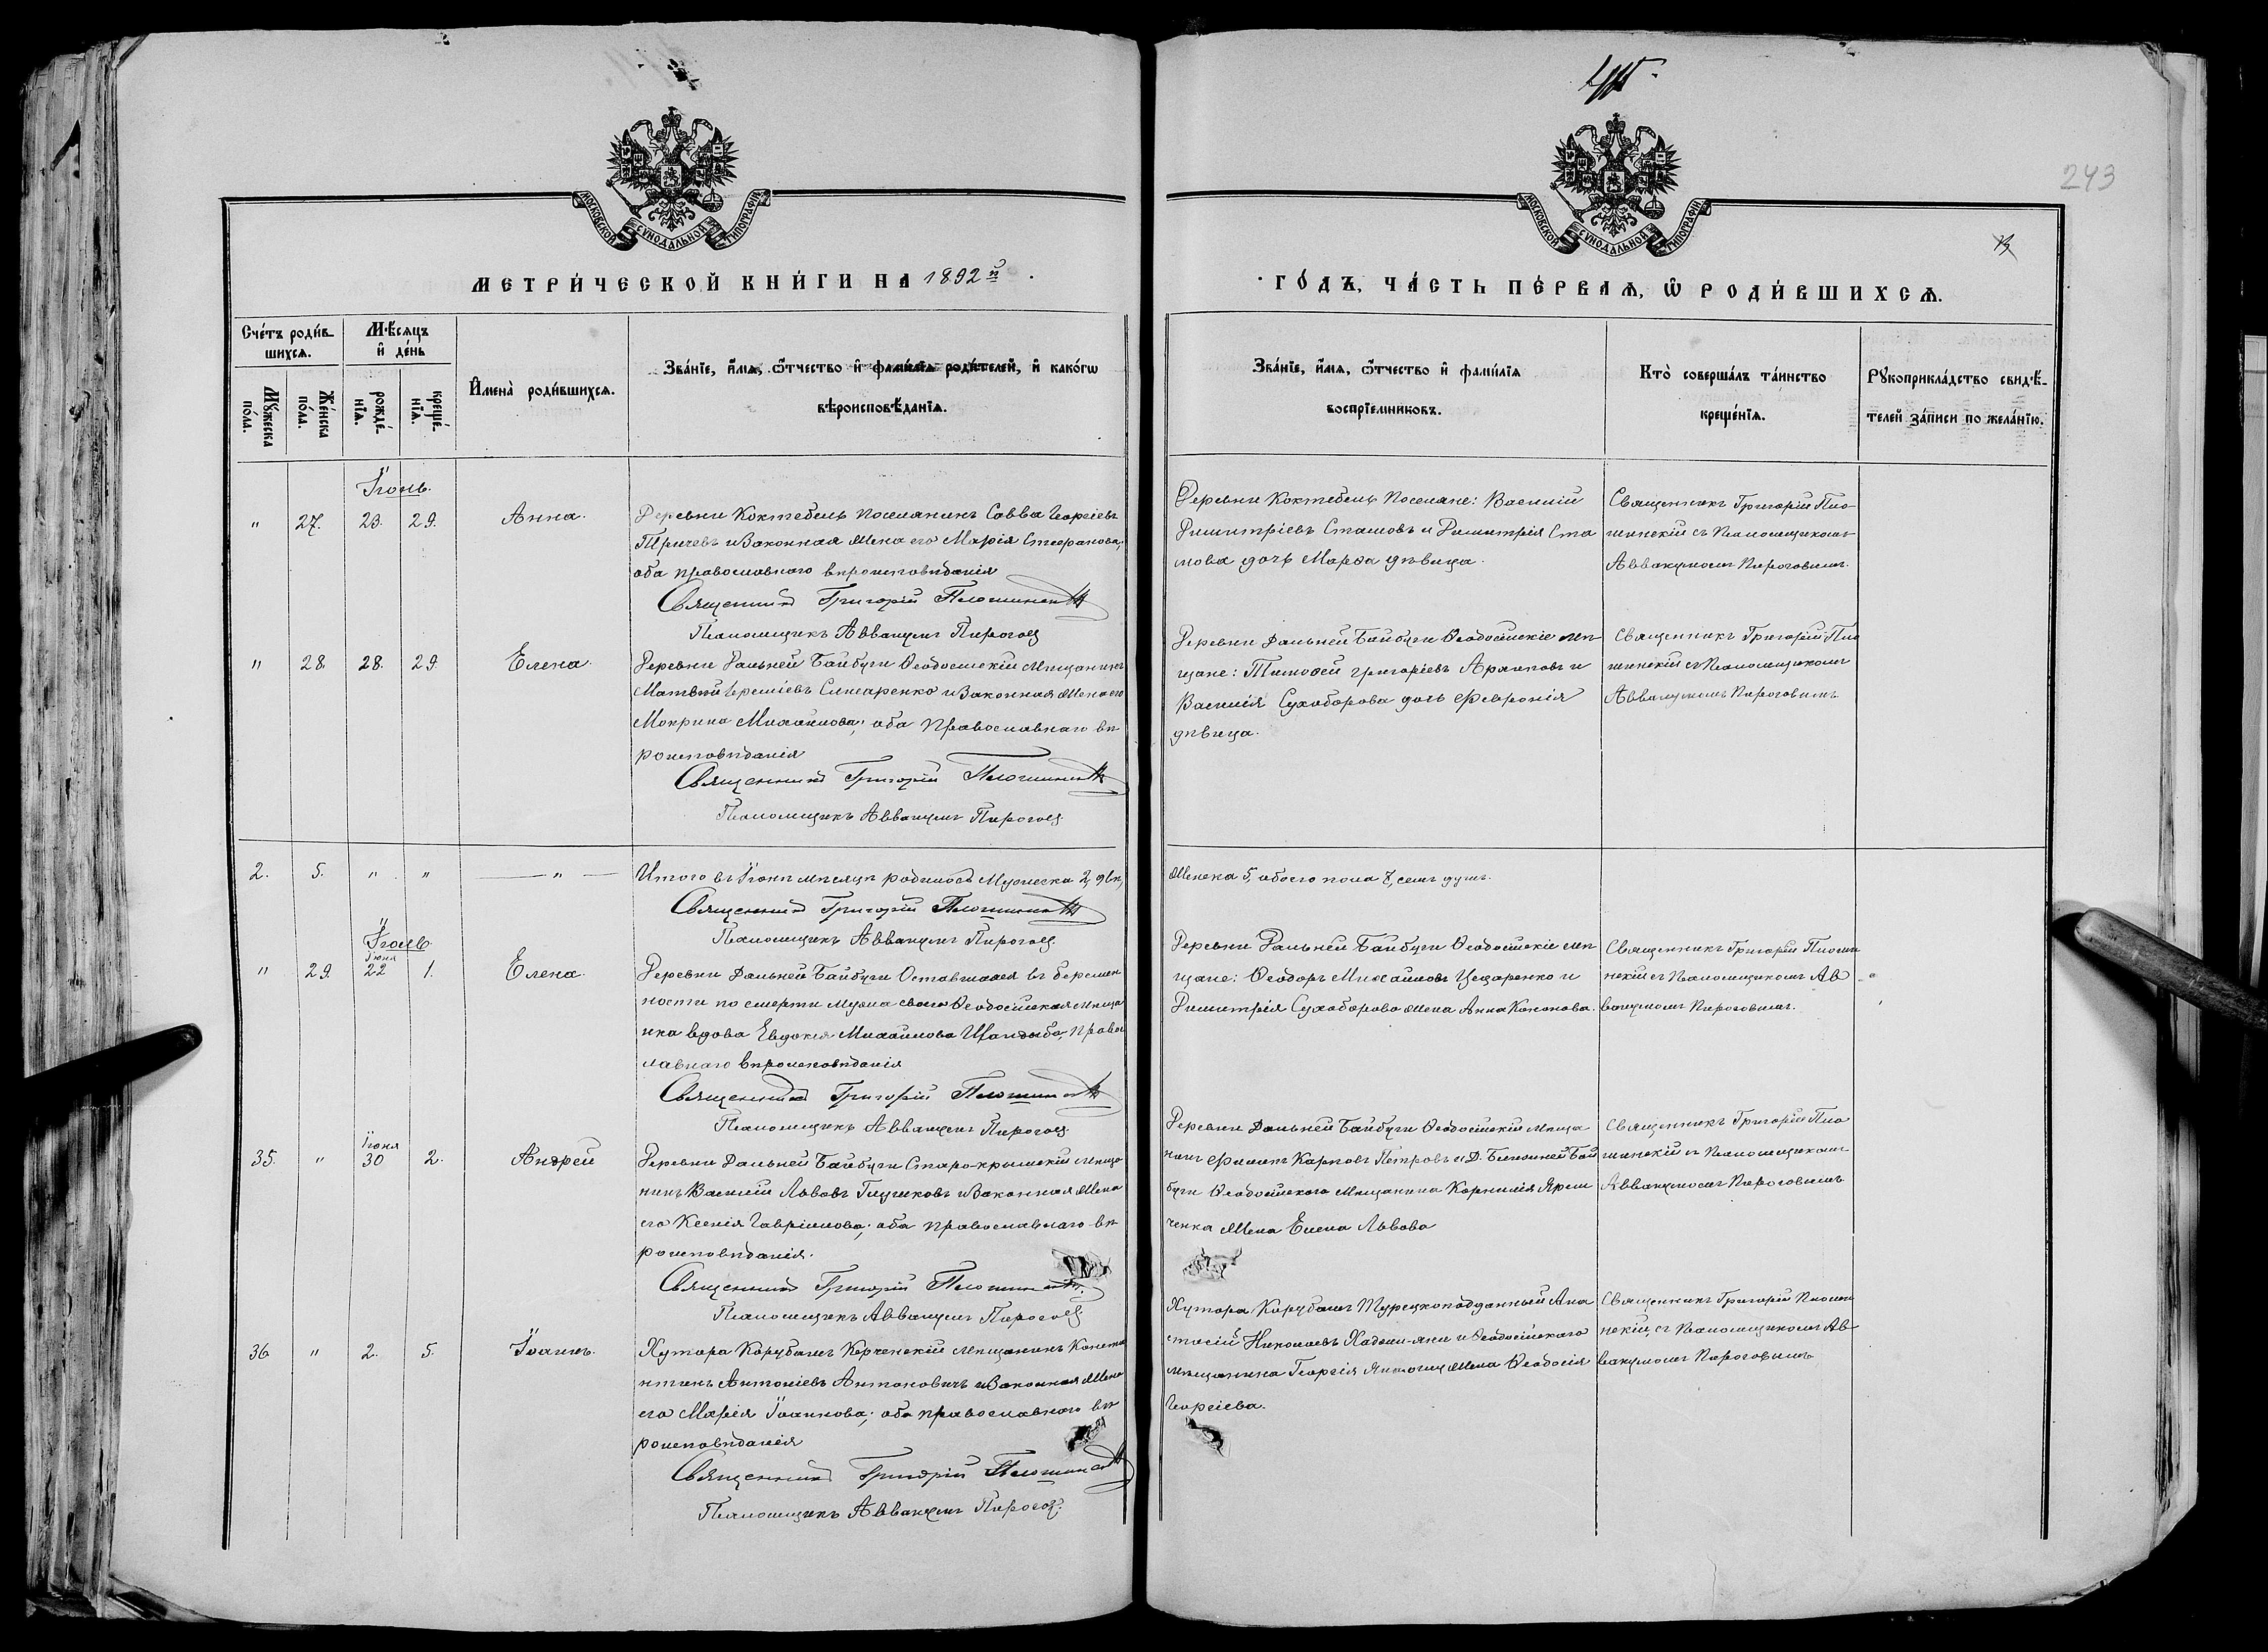 243
МОСКОВСКОЙ СУНОДАЛЬНОЙ ТИПОГРАФІИ
МОСКОВСКОЙ СУНОДАЛЬНОЙ ТИПОГРАФІИ
МЕТРИ́ЧЕСКОЙ КНИ́ГИ НА 1892й
ГО́ДЪ, ЧА́СТЬ ПЕ́РВАЯ, Ѡ РОДИ́ВШИХСЯ.
Сче́тъ роди́в-
шихся.
Му́жеска
по́ла.
Же́нска
по́ла.
Мѣ́сяцъ
и де́нь
рожде́-
нїя.
креще́-
нїя.
Имена̀ роди́вшихся.
Зва́нїе, и́мя, ѻ́тчество и фами́лїя роди́телей, и како́гѡ
вѣроисповѣ́данїя.
Зва́нїе, и́мя, ѻ́тчество и фами́лїя
воспрїе́мниковъ.
Кто̀ соверша́лъ та́инство
креще́нїя.
Рꙋкоприкла́дство свидѣ́-
телей за́писи по жела́нїю.
Іюнь.
" 27. 23. 29. Анна.
Деревни Коктебель поселянинъ Савва Георгіевъ
и законная жена его Марія Стефанова;
оба православнаго вѣроисповѣданія
Священникъ Григорій
Псаломщикъ Аввакумъ Пирогов
Деревни Коктебель Поселяне: Василій
Димитріевъ Стамовъ и Димитрія Ста
мова дочь Марѳа дѣвица.
Священникъ Григорій Пло-
шинскій съ Псаломщикомъ
Аввакумомъ Пироговымъ.
" 28. 28. 29. Елена.
Деревни Дальней Байбуги Ѳеодосійскій мѣщанинъ
Матвей Еремѣевъ Слюсаренко и законная жена его
Мокрина Михаилова; оба православнаго вѣ
роисповѣданія
Священникъ Григорій
Псаломщикъ Аввакумъ Пирогов
Деревни Дальней Байбуги Ѳеодосійскіе мѣ
щане: Тимоѳей Григоріевъ Архиповъ и
Василія Сухоборова дочь Феѵронія
дѣвица.
Священникъ Григорій Пло
шинскій съ Псаломщикомъ
Аввакумомъ Пироговымъ
2. 5. " " — " —
Итого въ Іюнѣ мѣсяцѣ родилось Мужеска 2, два,
Женска 5, обоего пола 7, семь душъ.
Священникъ Григорій
Псаломщикъ Аввакумъ Пирогов
Іюль
" 29. Іюня 22 1. Елена.
Деревни Дальней Байбуги Оставшаяся въ беремен
ности по смерти мужа своего Ѳеодосійская мѣща
нка вдова Евдокія Михаилова право
славнаго вѣроисповѣданія
Священникъ Григорій
Псаломщикъ Аввакумъ Пирогов
Деревни Дальней Байбуги Ѳеодосійскіе мѣ
щане: Ѳеодоръ Михаиловъ Цецаренко и
Димитрія Сухоборова жена Анна Кононова.
Священникъ Григорій Плоши
нскій съ Псаломщикомъ Ав
вакумомъ Пироговымъ.
35. " Іюня 30 2. Андрей
Деревни Дальней Байбуги Старо-крымскій мѣща
нинъ Василій Львовъ Глушковъ и законная жена
его Ксенія Гавріилова; оба православнаго вѣ
роисповѣданія.
Священникъ Григорій
Псаломщикъ Аввакумъ Пирогов
Деревни Дальней Байбуги Ѳеодосійскій мѣща
нинъ Филиппъ Карповъ Петровъ и Д. Ближней Бай
буги Ѳеодосійскаго мѣщанина Корнилія Ярем
ченка жена Елена Львова
Священникъ Григорій Пло
шинскій съ Псаломщикомъ
Аввакумомъ Пироговымъ
36 " 2. 5. Іоаннъ.
Хутора Корубашъ Керченскій мѣщанинъ Конста
нтинъ Антоніевъ Антоновичъ и законная жена
его Марія Іоаннова; оба православнаго вѣ
роисповѣданія
Священникъ Григорій
Псаломщикъ Аввакумъ Пирогов.
Хутора Корубашъ Турецкоподданный Ана
стасій Николаевъ Хаджи-яни и Ѳеодосійскаго
мѣщанина Георгія жена Ѳеодосія
Георгіева.
Священникъ Григорій Плоши
нскій, съ Псаломщикомъ Ав-
вакумомъ Пироговымъ